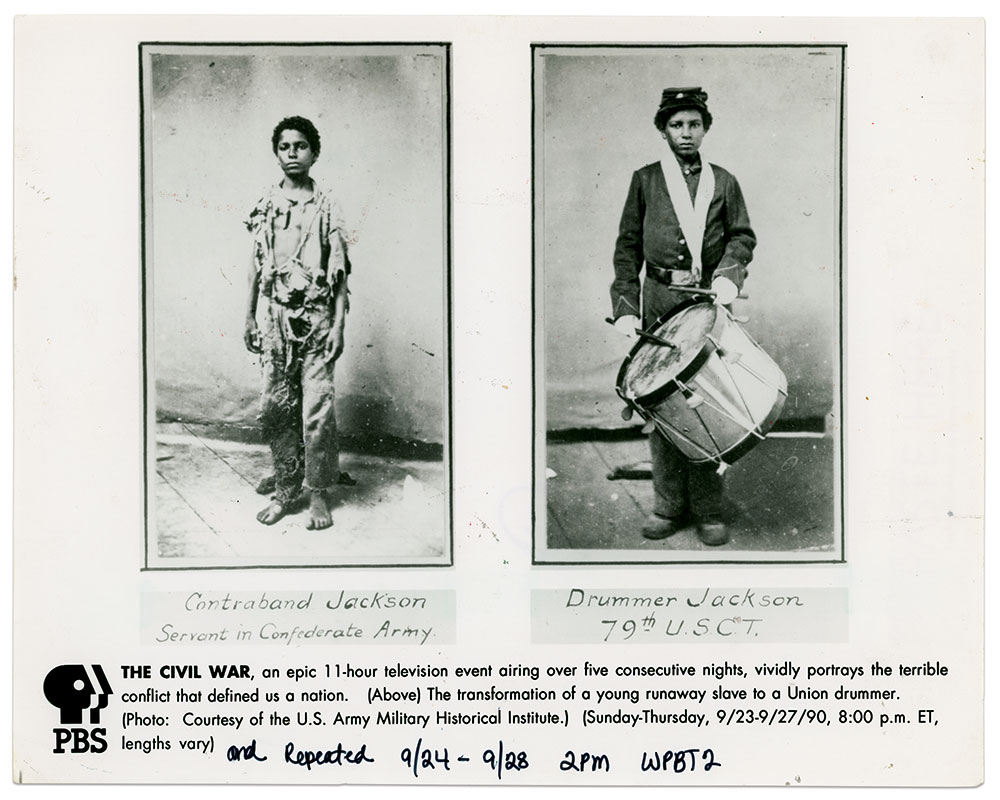 Contraband Jackson
Servant in Confederate Army.
Drummer Jackson
79th U.S.C.T.
THE CIVIL WAR, an epic 11-hour television event airing over five consecutive nights, vividly portrays the terrible
conflict that defined us a nation. (Above) The transformation of a young runaway slave to a Union drummer.
(Photo: Courtesy of the U.S. Army Military Historical Institute.) (Sunday-Thursday, 9/23-9/27/90, 8:00 p.m. ET,
lengths vary) and Repeated 9/24 - 9/28 2pm WPBT2
PBS